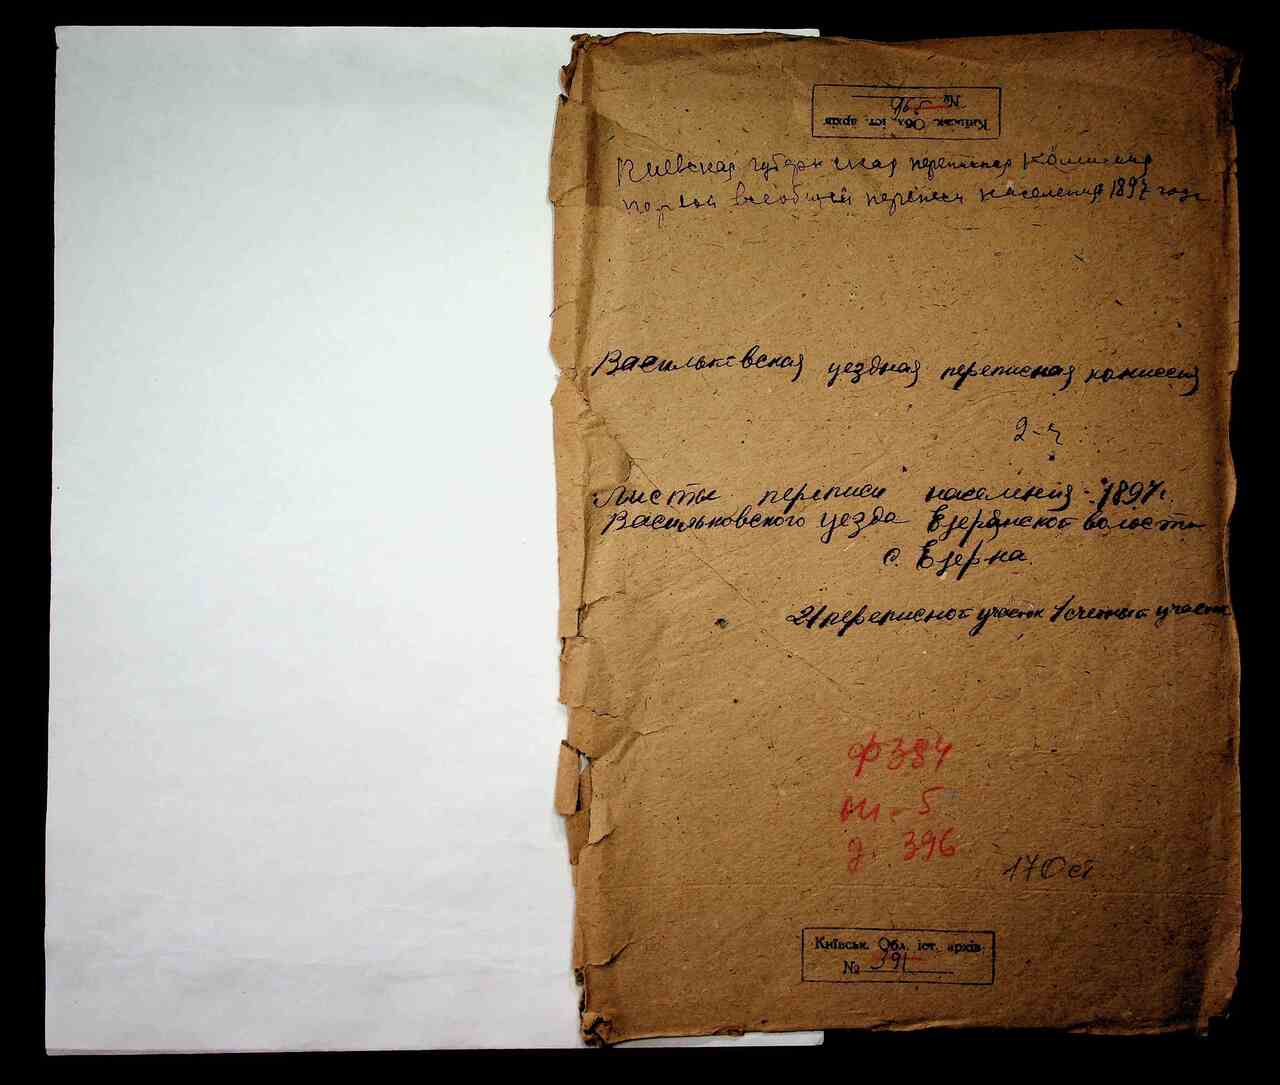 Київськ. Обл. іст. архів
№ 396
Киевская губернская переписная комиссия
первой всеобщей переписи населения 1897 года
Васильковская уездная переписная комиссия
2-я
Листы переписи населения 1897г.
Васильковского уезда Езерянской волости
с. Езерна.
21 переписной участок 1 счетный участок
ф 384
оп. - 5
д. 396
Київськ. Обл. іст. архів.
№ 391